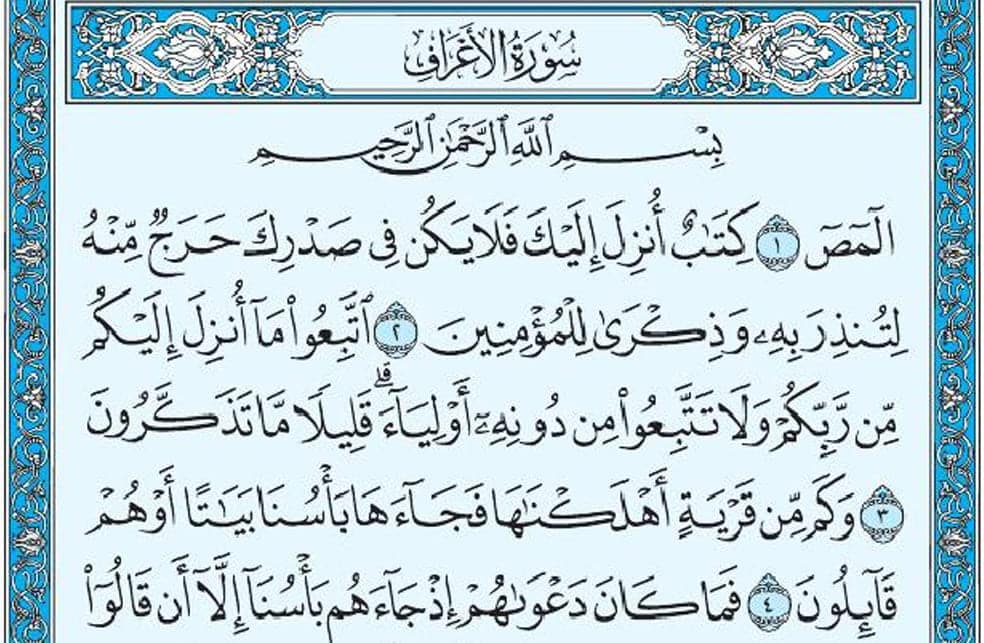 سُورَةُ الأَعْرَافِ
بِسْمِ ٱللَّهِ ٱلرَّحْمَٰنِ ٱلرَّحِيمِ
الٓمٓصٓ ١ كِتَٰبٌ أُنزِلَ إِلَيْكَ فَلَا يَكُن فِى صَدْرِكَ حَرَجٌ مِّنْهُ
لِتُنذِرَ بِهِۦ وَذِكْرَىٰ لِلْمُؤْمِنِينَ ٢ ٱتَّبِعُوا۟ مَآ أُنزِلَ إِلَيْكُم
مِّن رَّبِّكُمْ وَلَا تَتَّبِعُوا۟ مِن دُونِهِۦٓ أَوْلِيَآءَ ۗ قَلِيلًا مَّا تَذَكَّرُونَ
٣ وَكَم مِّن قَرْيَةٍ أَهْلَكْنَٰهَا فَجَآءَهَا بَأْسُنَا بَيَٰتًا أَوْ هُمْ
قَآئِلُونَ ٤ فَمَا كَانَ دَعْوَىٰهُمْ إِذْ جَآءَهُم بَأْسُنَآ إِلَّآ أَن قَالُوٓا۟